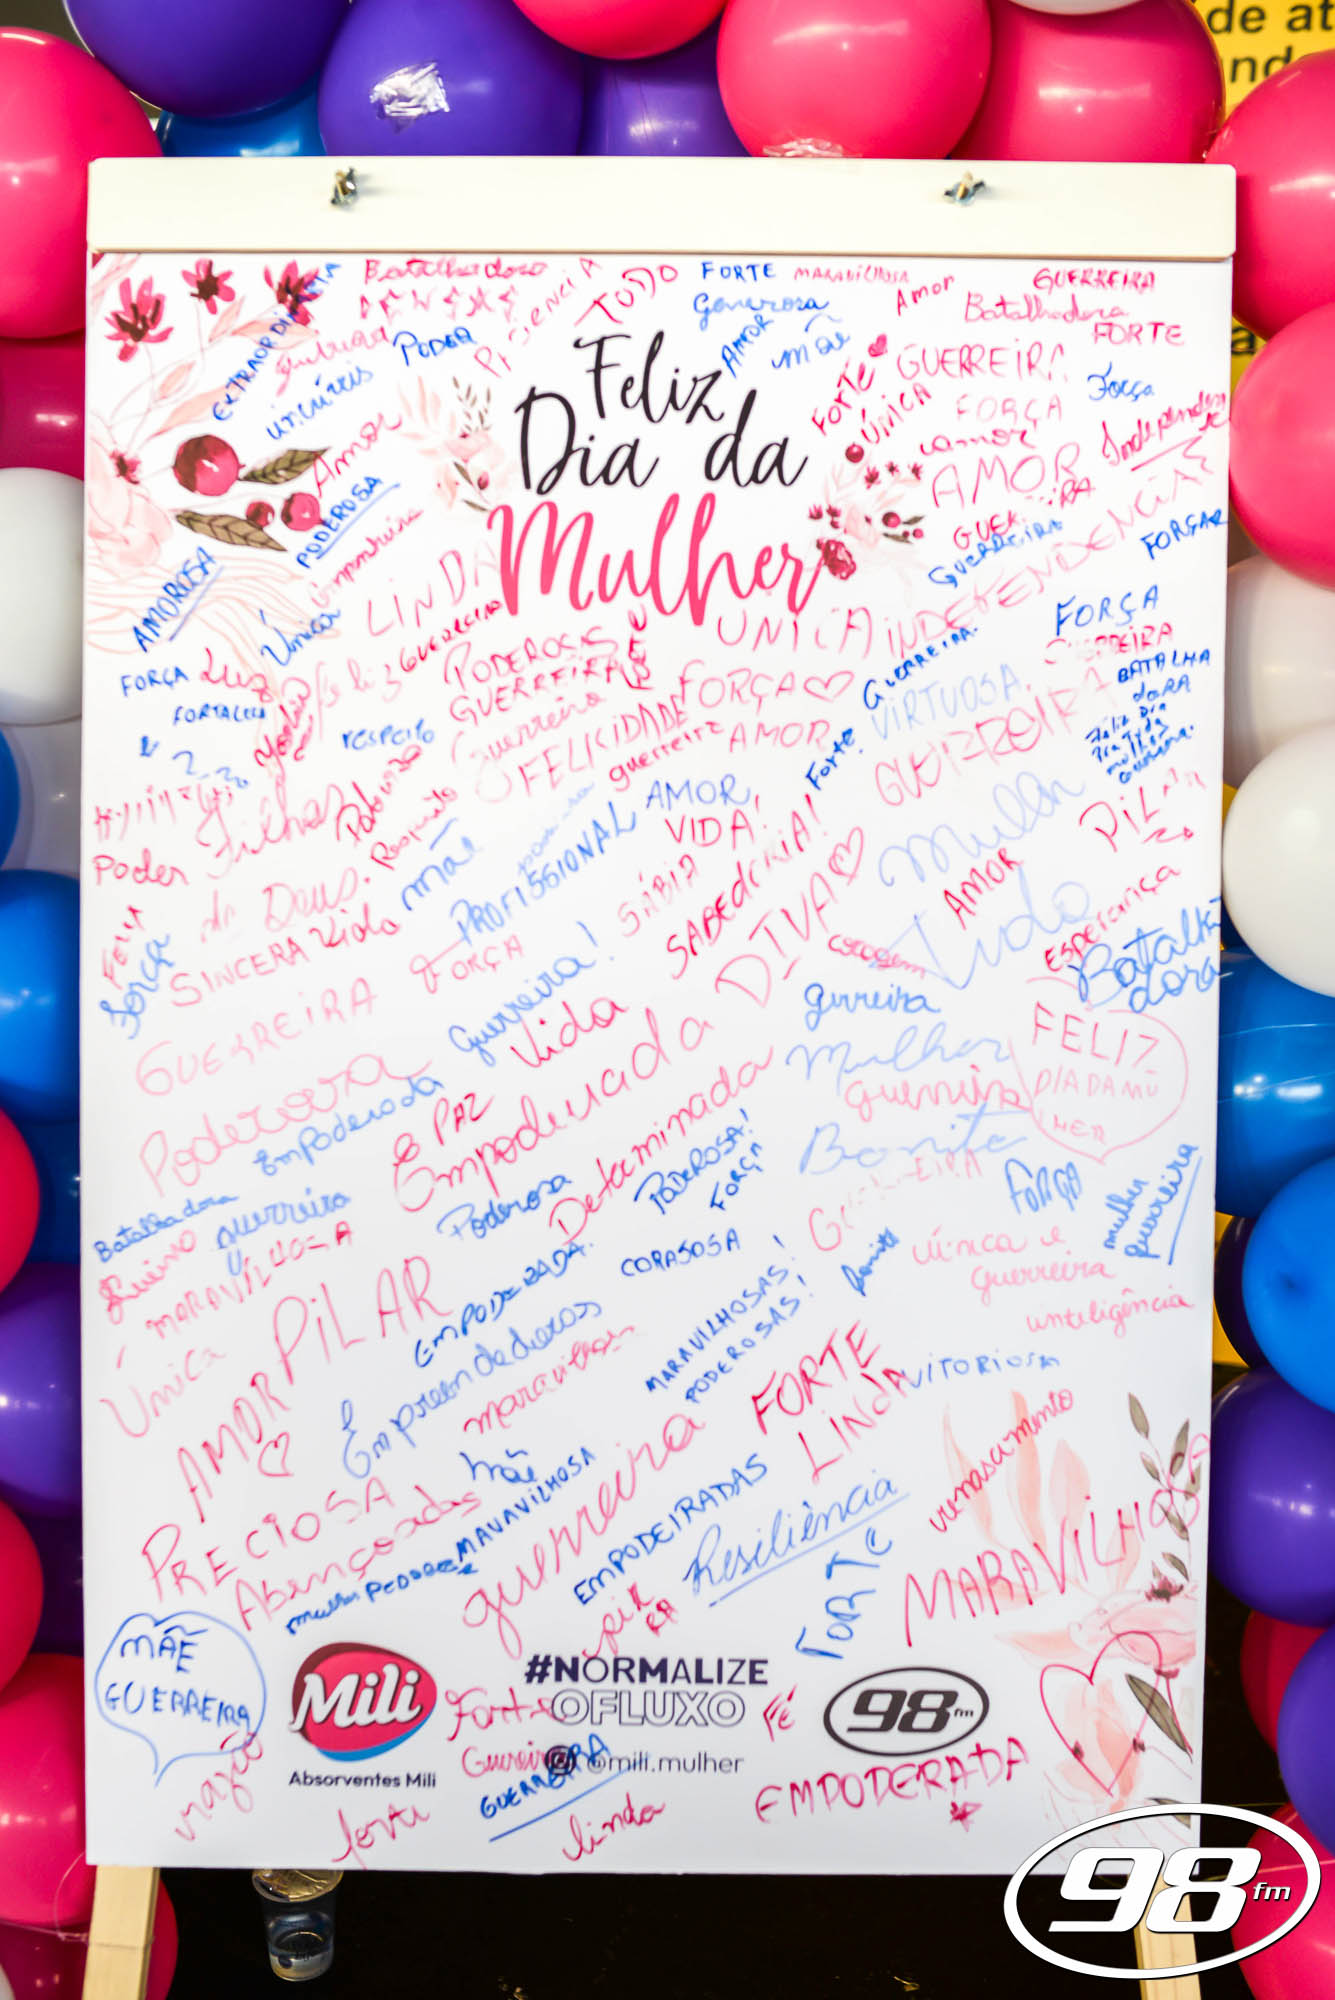 de at
Batalhadora
FORTE
MARAVILHOSA
Amor
GUERREIRA
EXTRAORDINÁRIA
PODER
TUDO
Generosa
AMOR
mãe
Batalhadora
FORTE
Feliz
Dia da
Mulher
FORTE
GUERREIRA
ÚNICA
FORÇA
Força
amor
Independente
Amor
PODEROSA
AMOR
GUERREIRA
GUERREIRA
INDEPENDENCIA
FORÇA
AMOROSA
Única
LINDA
GUERREIRA
UNICA
FORÇA
GUERREIRA
FORÇA
Luz
FORTALEZA
Feliz
PODEROSA
GUERREIRA
FORÇA
GUERREIRA.
BATALHA
DORA
respeito
Guerreira
FELICIDADE
guerreira
AMOR
Forte.
VIRTUOSA
GUERREIRA
Poder
Filha
de Deus.
Respeito
mãe
PROFISSIONAL
AMOR,
VIDA!
SÁBIA
SABEDORIA!
DIVA
Mulher
AMOR
PILAR
FELIZ
Força
SINCERA
Vida
FORÇA
coragem
Tudo
ESPERANÇA
Batalha
dora
GUERREIRA
Guerreira!
Vida
guerreira
Mulher
FELIZ
DIA DA MU
LHER
Poderosa
Empoderada
E PAZ
Empoderada
Determinada
guerreira
Bonita
Batalhadora
guerreira
MARAVILHOSA
Poderosa
PODEROSA!
FORÇA
GUERREIRA
FORÇA
mulher
guerreira
Única
AMOR
PILAR
EMPODERADA.
CORAJOSA
Bonita
única e
guerreira
inteligência
Empreendedoras
maravilhosa
MARAVILHOSAS!
PODEROSAS!
FORTE
LINDA
VITORIOSA
PRECIOSA
Abençoadas
mãe
MARAVILHOSA
guerreira
EMPODEIRADAS
Resiliência
FORTE
renascimento
MARAVILHOSA
MÃE
GUERREIRA
Mili
Absorventes Mili
#NORMALIZE
OFLUXO
@mili.mulher
FÉ
98 fm
Forte
Guerreira
GUERREIRA
razão
forte
linda
EMPODERADA
98 fm